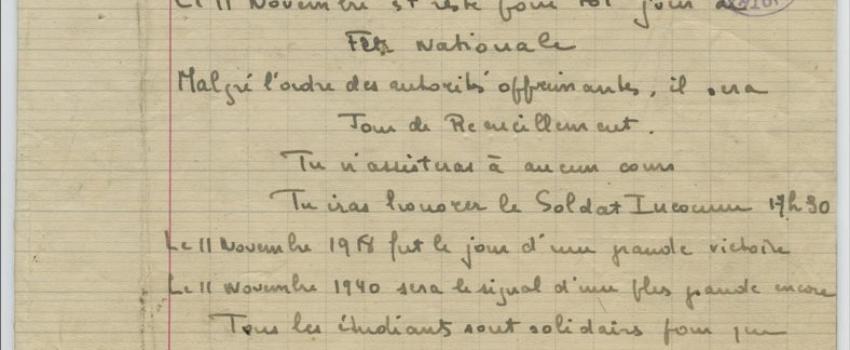 Le 11 Novembre est resté pour toi jour de
Fête Nationale
Malgré l'ordre des autorités opprimantes, il sera
Jour de Recueillement.
Tu n'assisteras à aucun cours
Tu iras honorer le Soldat Inconnu 17h30
Le 11 Novembre 1918 fut le jour d'une grande victoire
Le 11 Novembre 1940 sera le signal d'une plus grande encore
Tous les étudiants sont solidaires pour que